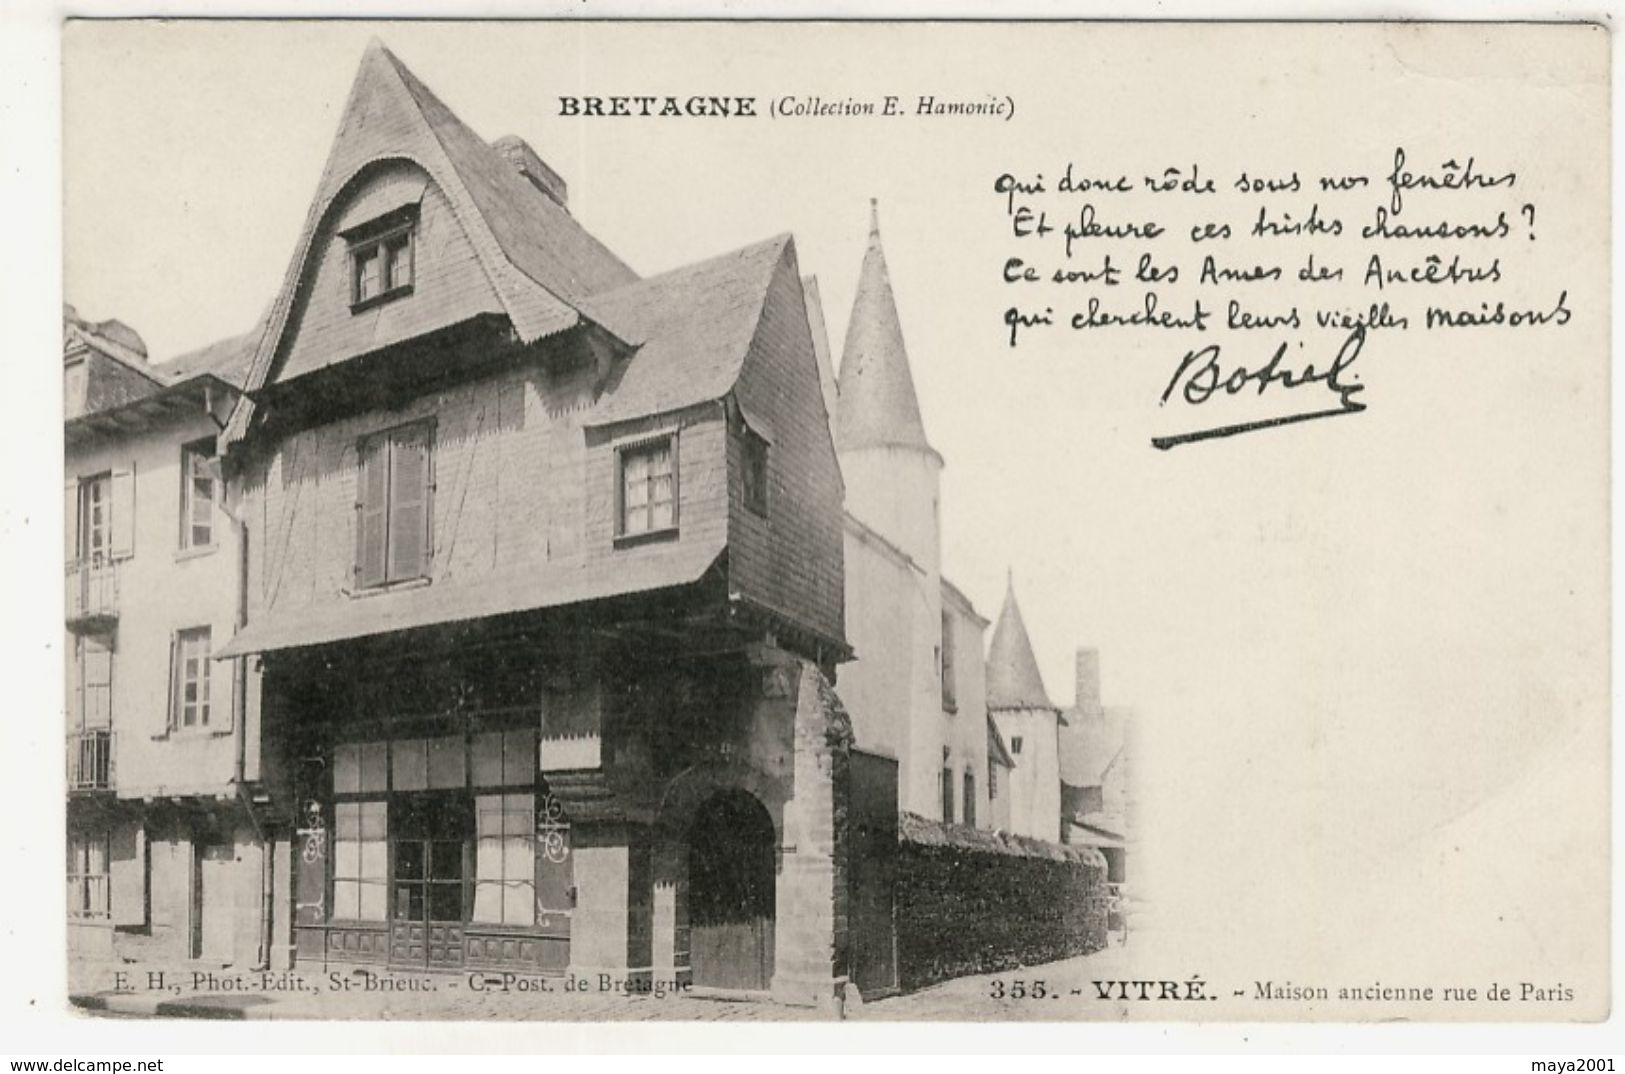 BRETAGNE (Collection E. Hamonic)
qui donc rôde sous nos fenêtres
Et pleure ces tristes chansons ?
Ce sont les Ames des Ancêtres
qui cherchent leurs vieilles maisons
Botrel
E. H., Phot.-Edit., St-Brieuc. - C. Post. de Bretagne
355. - VITRÉ. - Maison ancienne rue de Paris
www.delcampe.net
maya2001